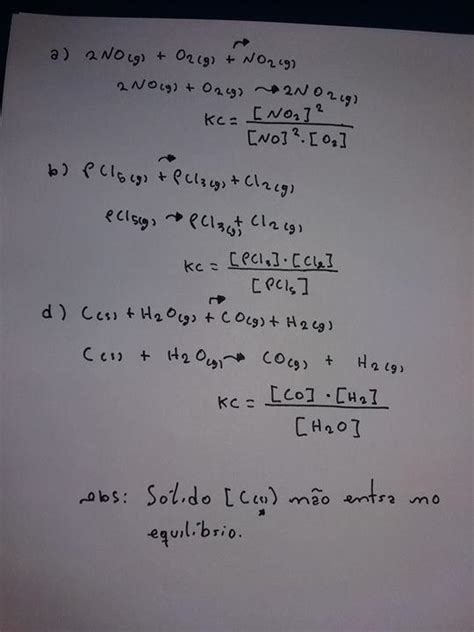 a) 2NO(g) + O2(g) + NO2(g)
2NO(g) + O2(g) → 2NO2(g)
KC = [NO2]² / [NO]² · [O2]
b) PCl5(g) + PCl3(g) + Cl2(g)
PCl5(g) → PCl3(g) + Cl2(g)
KC = [PCl3] · [Cl2] / [PCl5]
d) C(s) + H2O(g) + CO(g) + H2(g)
C(s) + H2O(g) → CO(g) + H2(g)
KC = [CO] · [H2] / [H2O]
obs: Sólido [C(s)) não entra no
equilíbrio.